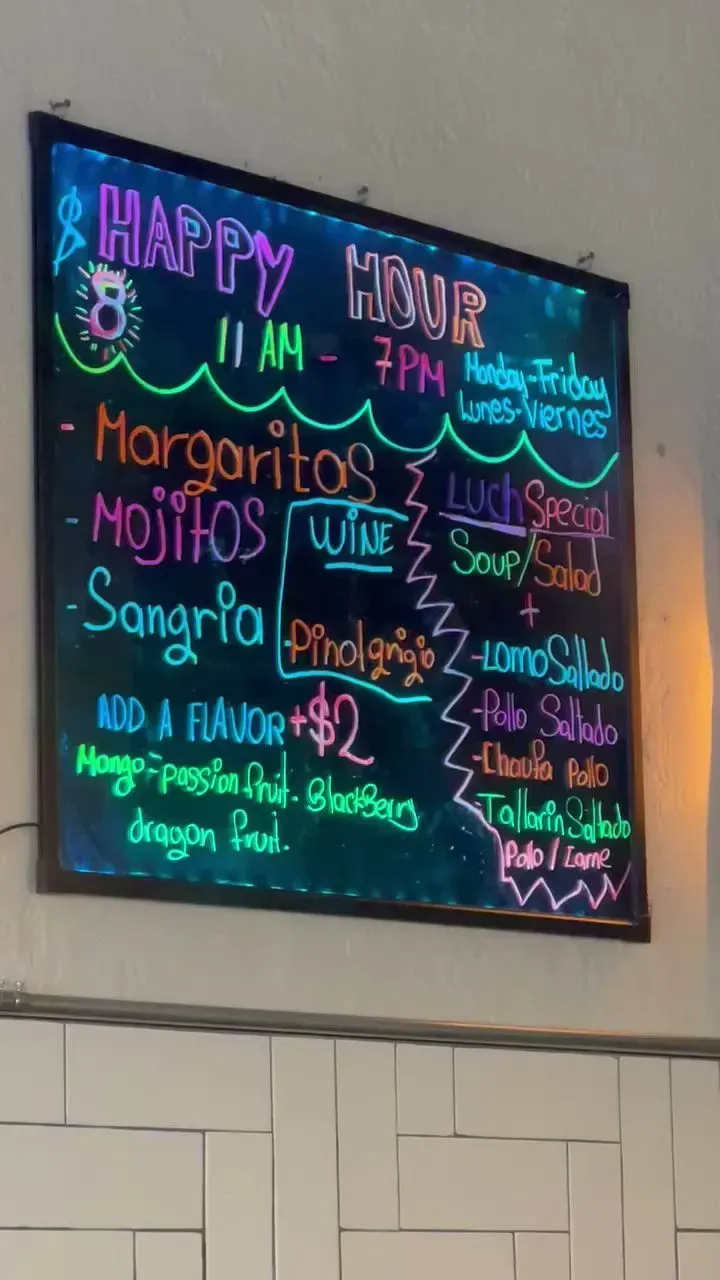 $ HAPPY HOUR
8
11 AM - 7PM
Monday-Friday
Lunes-Viernes
- Margaritas
- Mojitos
- Sangria
WINE
.Pinolgrigio
ADD A FLAVOR +$2
Mango-passion fruit. BlackBerry
dragon fruit.
LUCH Special
Soup/Salad
+
-LomoSaltado
-Pollo Saltado
-Chaufa Pollo
-Tallarin Saltado
Pollo / Carne